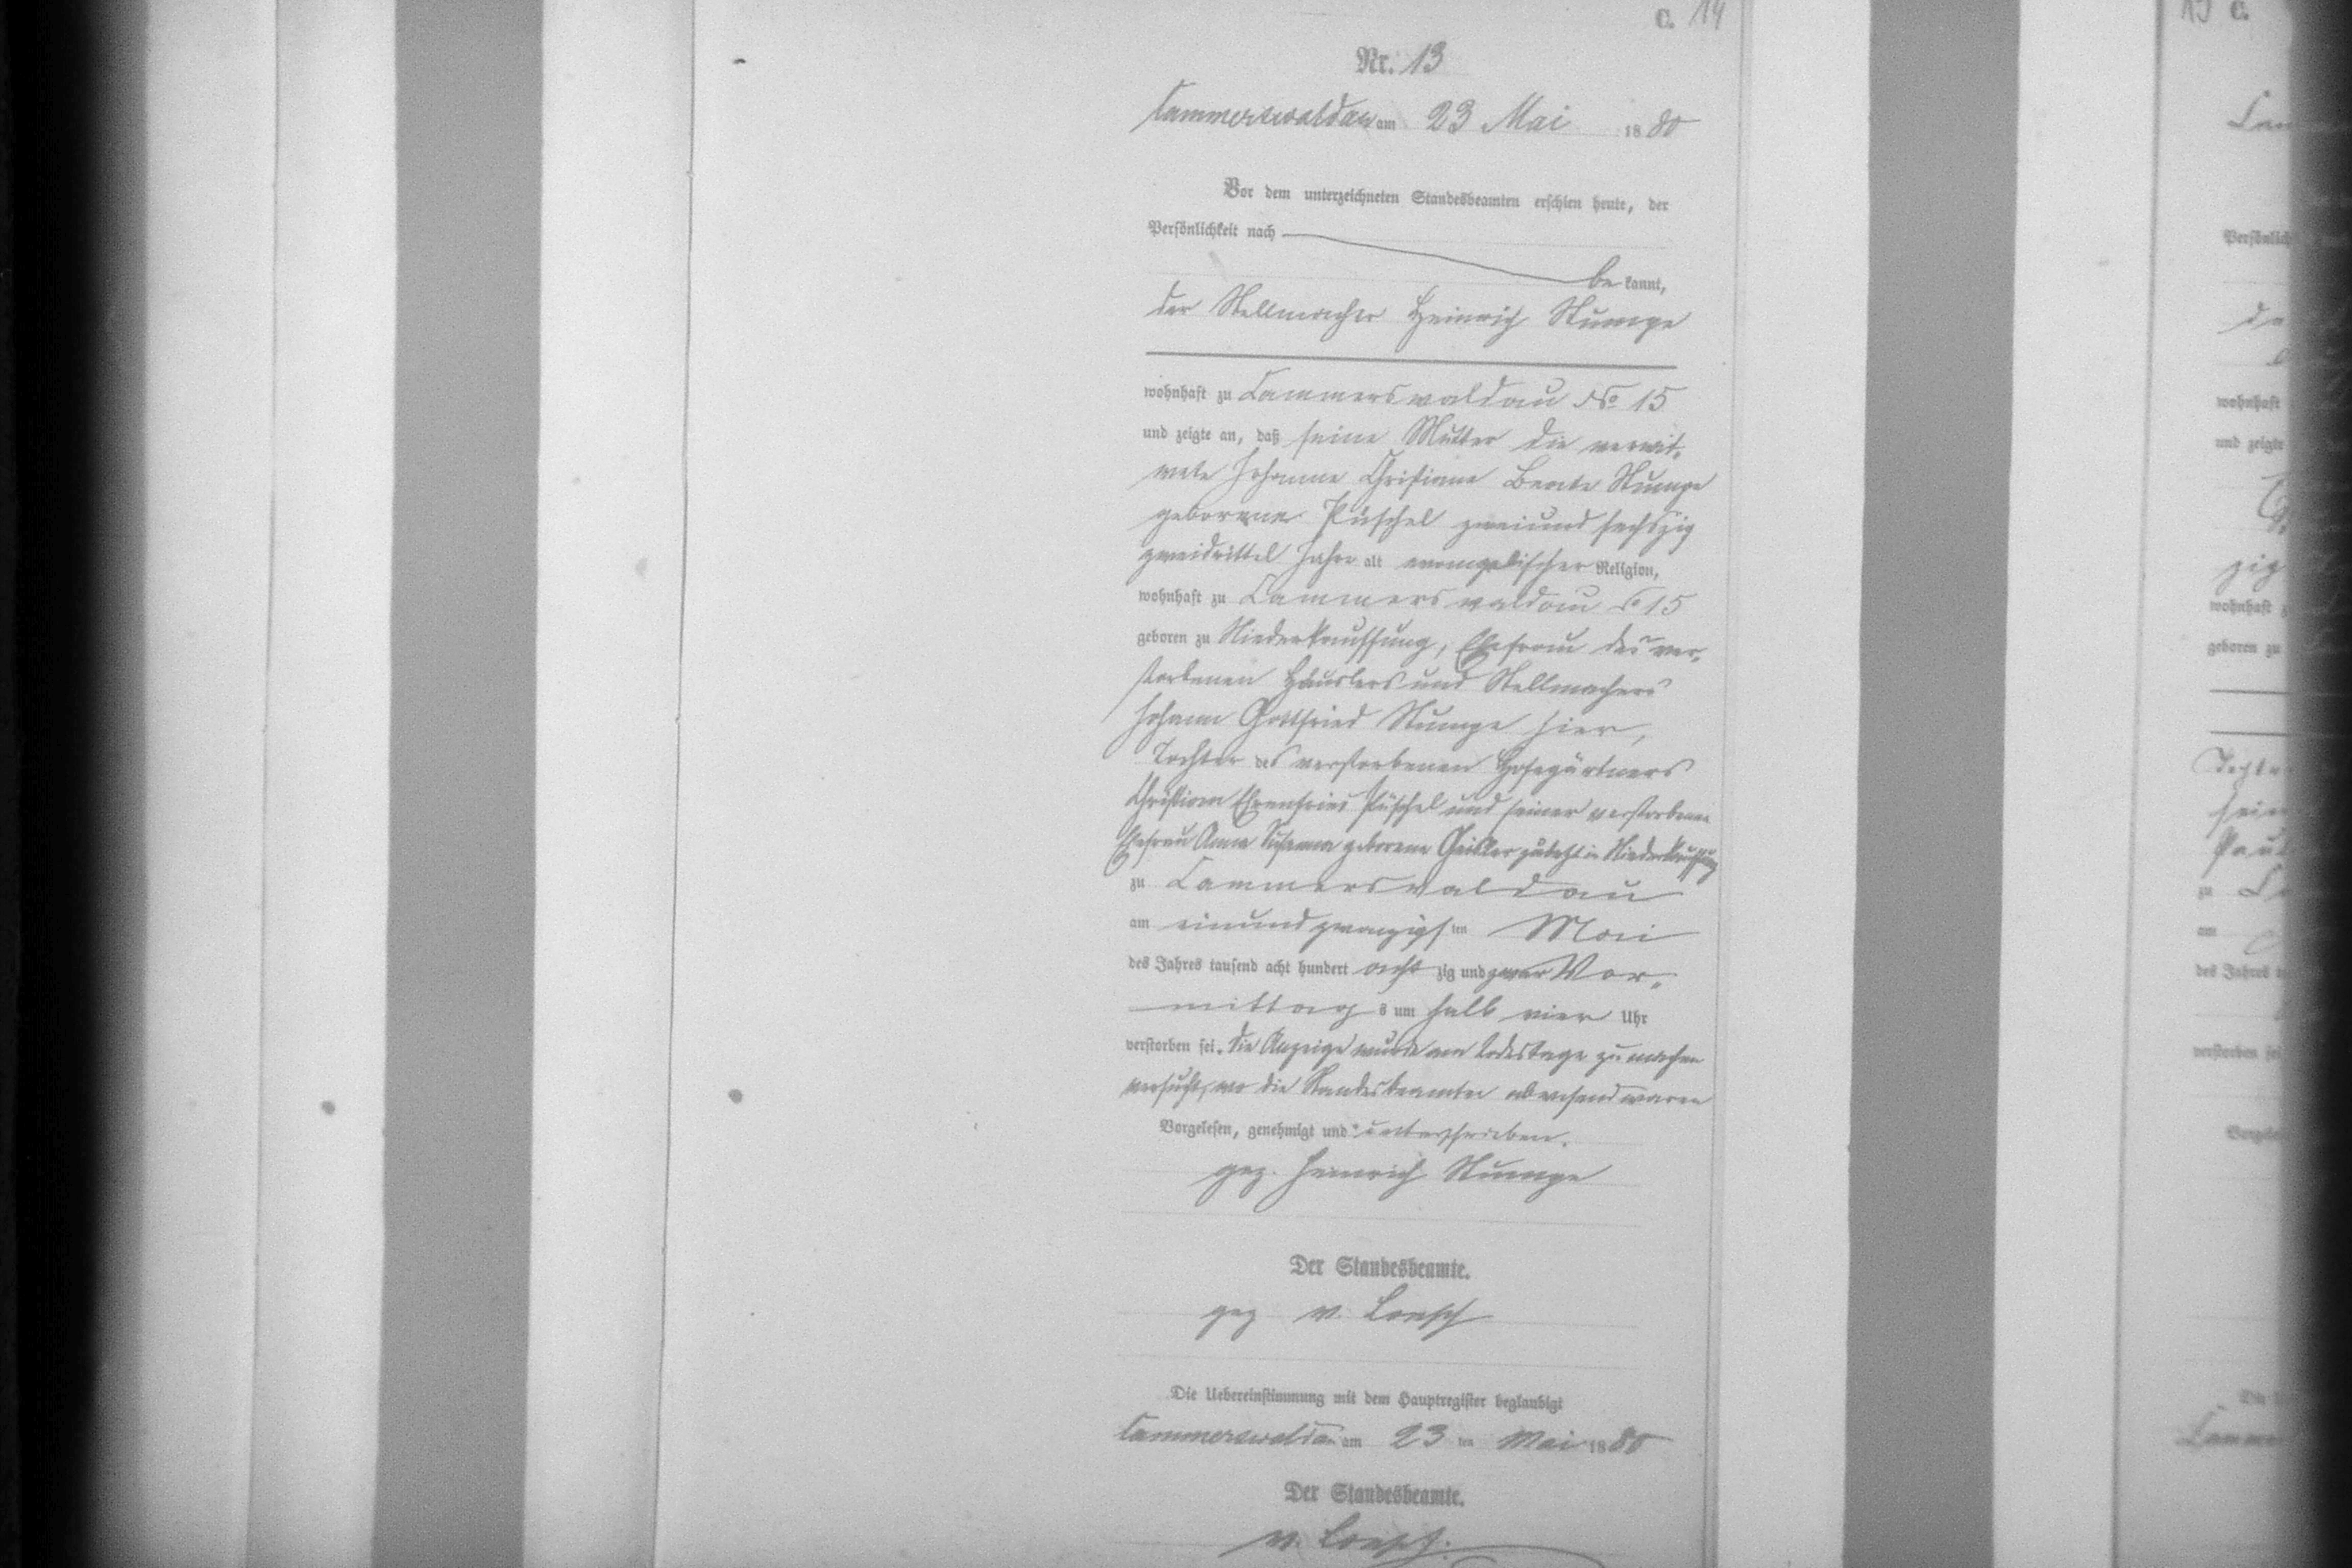 C. 14
Nr. 13
Cammerswaldau am 23 Mai 1880
Vor dem unterzeichneten Standesbeamten erschien heute, der
Persönlichkeit nach
be kannt,
der Stellmacher Heinrich Stumpe
wohnhaft zu Cammerswaldau No 15
und zeigte an, daß seine Mutter die verwit-
wete Johanne Christiane Beate Stumpe
geborene Püschel zweiundsechszig
zweidrittel Jahre alt evangelischer Religion,
wohnhaft zu Cammerswaldau No 15
geboren zu Niederkauffung, Ehefrau des ver-
storbenen Häuslers und Stellmachers
Johann Gottfried Stumpe hier,
Tochter des verstorbenen Hofegärtners
Christian Ehrenfried Püschel und seiner verstorbenen
Ehefrau Anna Susanna geborene Geisler zuletzt in Niederkauffung
zu Cammerswaldau
am einundzwanzigsten Mai
des Jahres tausend acht hundert acht zig und zwar Vor-
mittag s um halb vier Uhr
verstorben sei. Die Anzeige wurde am Todestage zu machen
versucht, wo die Standesbeamten abwesend waren
Vorgelesen, genehmigt und unterschrieben.
gez. Heinrich Stumpe
Der Standesbeamte.
gez v.
Die Uebereinstimmung mit dem Hauptregister beglaubigt
Cammerswaldau am 23 ten Mai 1880
Der Standesbeamte.
v.
15 C.
Persönlich
wohnhaft
und zeigte
zig
wohnhaft z
geboren zu
Tochte
zu
am
des Jahres
verstorben sei